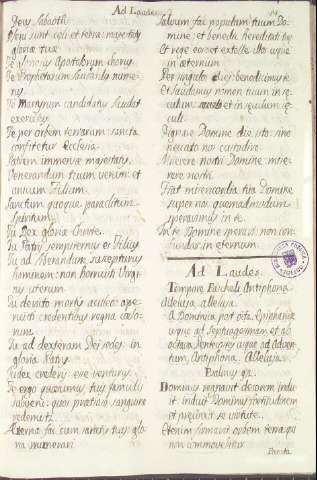 Ad Laudes.
Deus Sabaoth
Pleni sunt cæli et terra: majestatis
gloriæ tuæ
Te gloriosus Apostolorum chorus
Te Prophetarum laudabilis nume-
rus
Te Martyrum candidatus laudat
exercitus
Te per orbem terrarum sancta
confitetur Ecclesia
Patrem immensæ majestatis
Venerandum tuum verum: et
unicum Filium
Sanctum quoque paraclitum
Spiritum
Tu Rex gloriæ Christe
Tu Patris sempiternus es Filius
Tu ad liberandum suscepturus
hominem: non horruisti Virgi-
nis uterum
Tu devicto mortis aculeo: ape-
ruisti credentibus regna cælo-
rum
Tu ad dexteram Dei sedes: in
gloria Patris
Judex crederis esse venturus
Te ergo quæsumus tuis famulis
subveni: quos pretioso sanguine
redemisti
Æterna fac cum sanctis tuis: glo-
ria numerari
Salvum fac populum tuum Do-
mine: et benedic hereditati tuæ
Et rege eos: et extolle illos usque
in æternum
Per singulos dies: benedicimus te
Et laudamus nomen tuum in sæ-
culum et in sæculum sæ-
culi
Dignare Domine die isto: sine
peccato nos custodire
Miserere nostri Domine: mise-
rere nostri
Fiat misericordia tua Domine
super nos: quemadmodum
speravimus in te
In te Domine speravi: non con-
fundar in æternum
Ad Laudes.
Tempore Paschali Antiphona
Alleluja, alleluja.
A Dominica post octa. Epiphaniæ
usque ad Septuagesimam et ab
octava Pentecostes usque ad Adven-
tum, Antiphona. Alleluja.
Psalmus 92.
Dominus regnavit decorem indu-
it: induit Dominus fortitudinem
et præcinxit se virtute.
Etenim firmavit orbem terræ: qui
non commovebitur
Parata